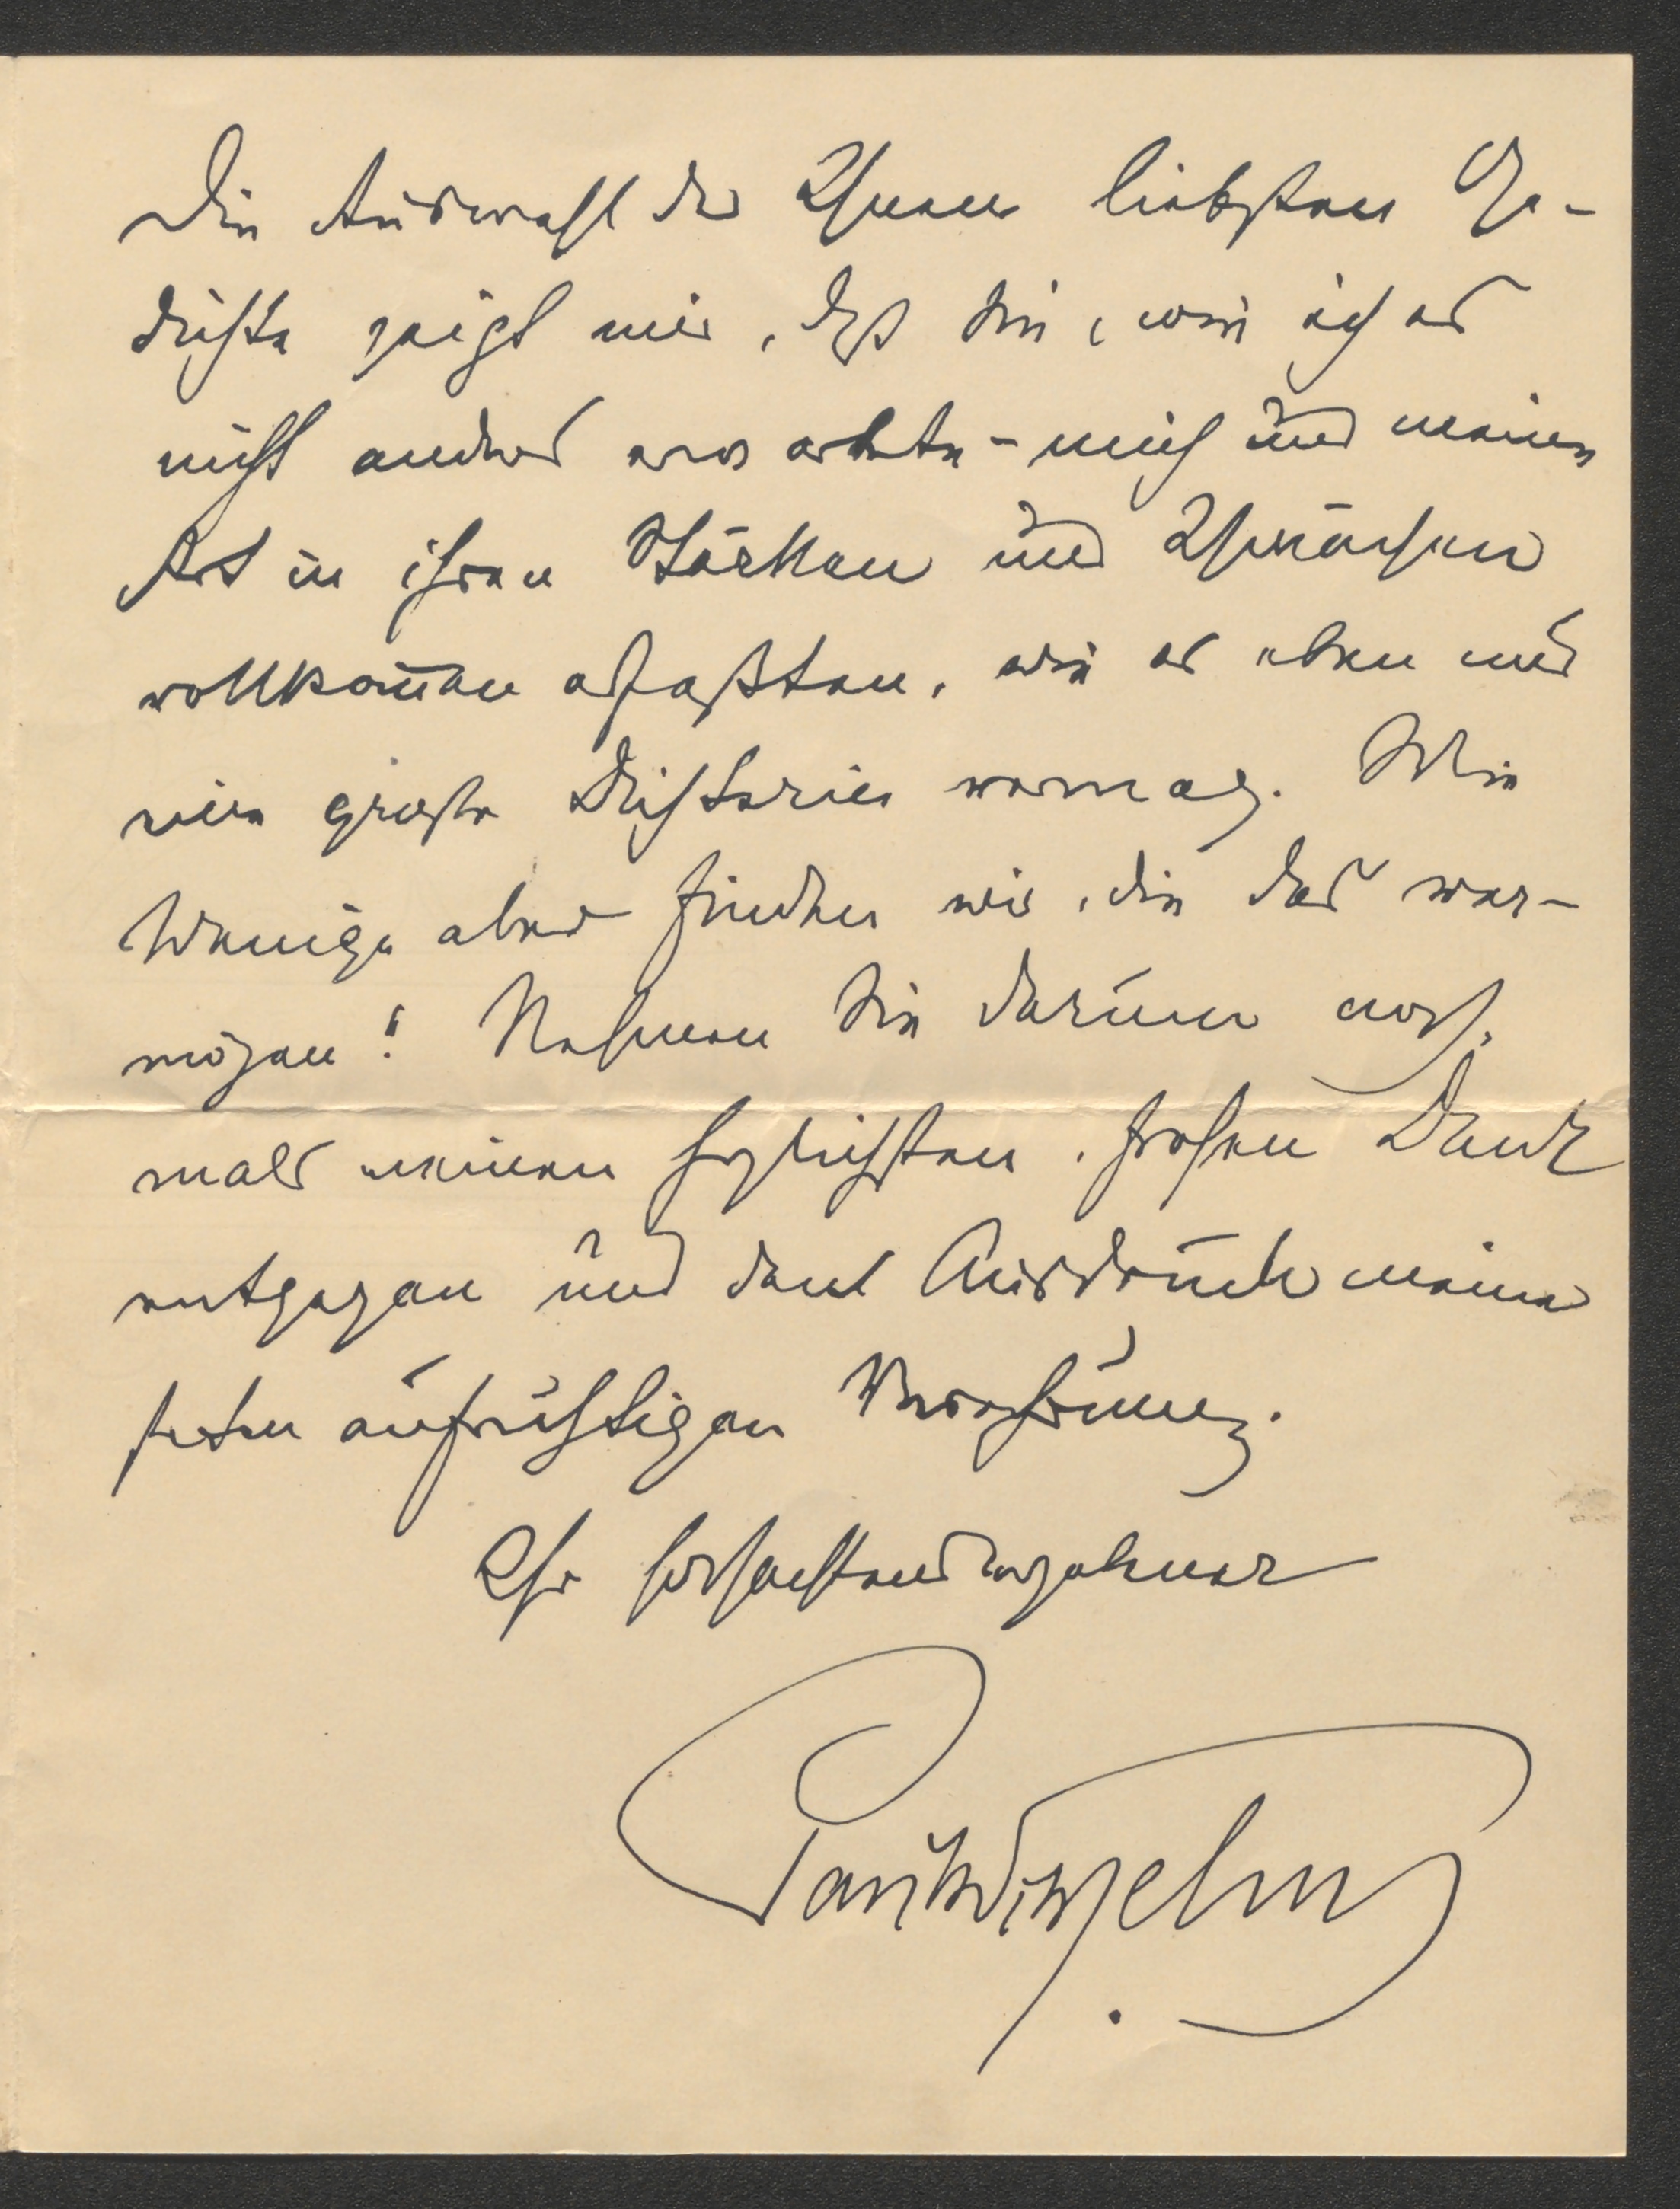 Die Auswahl der Ihnen liebsten Ge-
dichte zeigt mir, daß Sie, wie ich es
nicht anders erwartete - mich und meine
Art in ihren Stärken und Schwächen
vollkom̄en erfaßten, wie es eben nur
eine große Dichterin vermag. Wie
Wenige aber finden wir, die das ver-
mögen! Nehmen Sie darum noch
mals meinen herzlichsten, frohen Dank
entgegen und den Ausdruck meiner
steten aufrichtigen Verehrung.
Ihr hochachtend ergebener